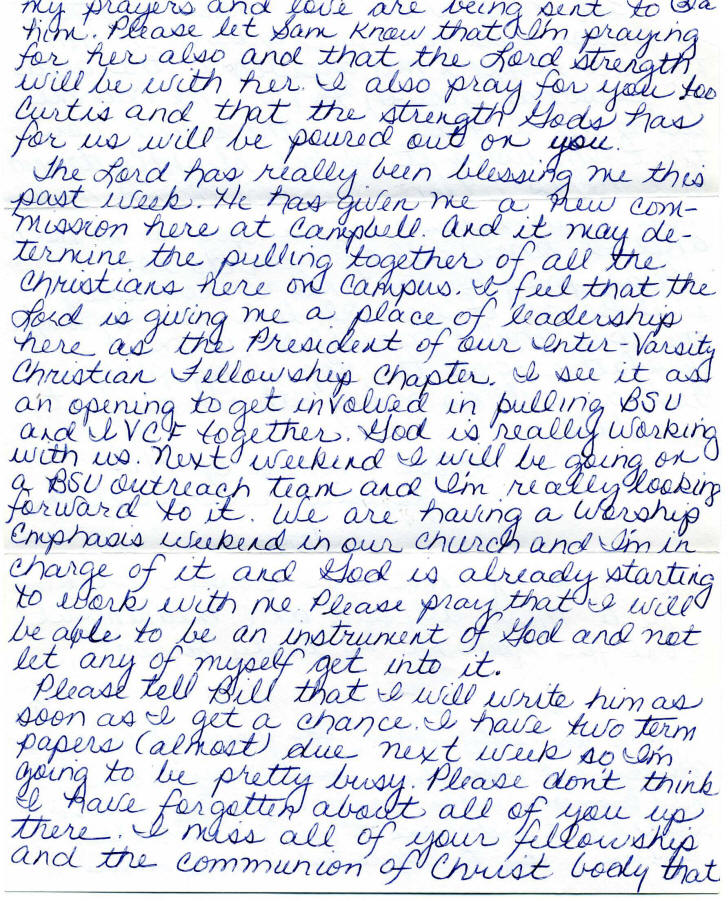 my prayers and love are being sent to
him. Please let Sam know that I'm praying
for her also and that the Lord strength
will be with her. I also pray for you too
Curtis and that the strength Gods has
for us will be poured out on you.
The Lord has really been blessing me this
past week. He has given me a new com-
mission here at Campbell. And it may de-
termine the pulling together of all the
Christians here on campus. I feel that the
Lord is giving me a place of leadership
here as the President of our Inter-Varsity
Christian Fellowship Chapter. I see it as
an opening to get involved in pulling BSU
and IVCF together. God is really working
with us. Next weekend I will be going on
a BSU outreach team and I'm really looking
forward to it. We are having a Worship
Emphasis weekend in our church and I'm in
charge of it and God is already starting
to work with me. Please pray that I will
be able to be an instrument of God and not
let any of myself get into it.
Please tell Bill that I will write him as
soon as I get a chance. I have two term
papers (almost) due next week so I'm
going to be pretty busy. Please don't think
I have forgotten about all of you up
there. I miss all of your fellowship
and the communion of Christ body that